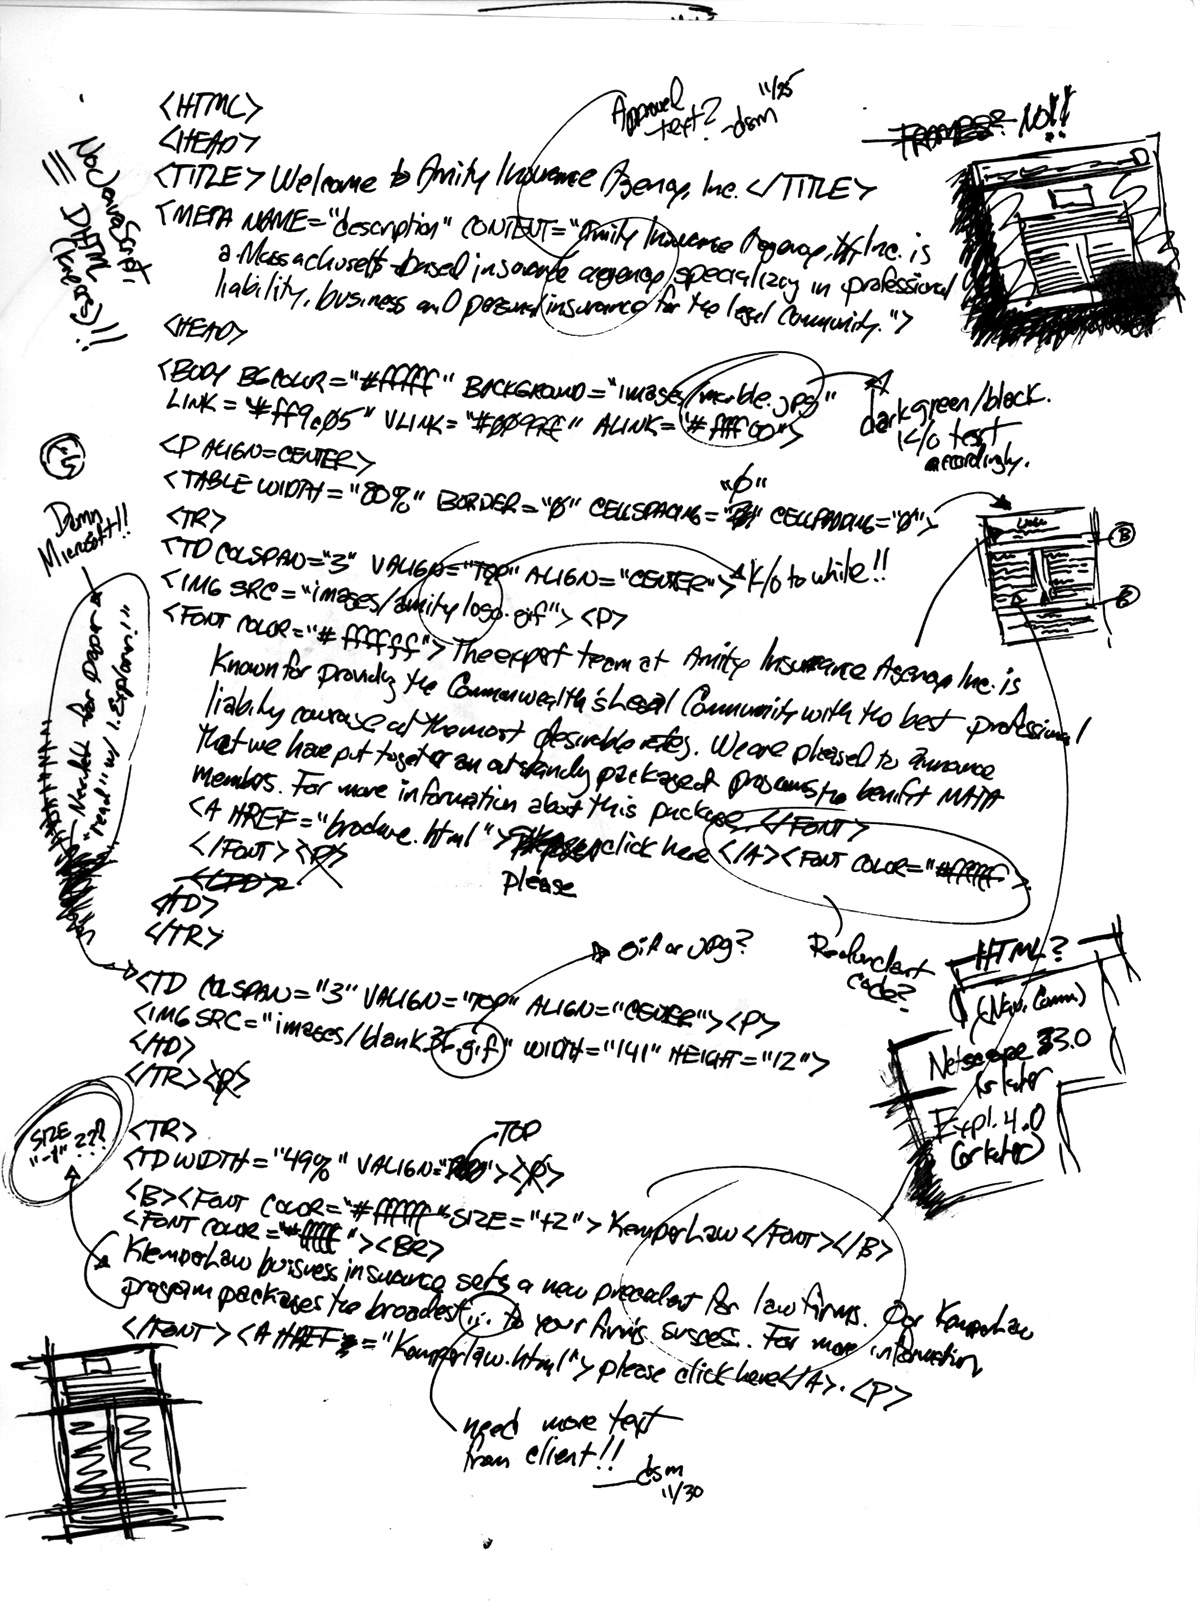 Approval
text? -dsm 11/25
FRAMES? NO!!
No JavaScript,
DHTML
<HTML>
<HEAD>
<TITLE> Welcome to Amity Insurance Agency, Inc. </TITLE>
<META NAME="description" CONTENT="Amity Insurance Agency, Inc. is
a Massachusetts-based insurance agency specializing in professional
liability, business and personal insurance for the legal community.">
<HEAD>
<BODY BGCOLOR="#ffffff" BACKGROUND="images/marble.jpg"
LINK="#ff9c05" VLINK="#0099ff" ALINK="#ffff00">
dark green/black.
K/o text
accordingly.
<P ALIGN=CENTER>
"0"
<TABLE WIDTH="80%" BORDER="0" CELLSPACING= CELLPADDING="0">
<TR>
Damn
Microsoft!!
<TD COLSPAN="3" VALIGN="TOP" ALIGN="CENTER"> K/o to white!!
B
<IMG SRC="images/amitylogo.gif"> <P>
<FONT COLOR="#ffffff"> The expert team at Amity Insurance Agency Inc. is
known for providing the Commonwealth's Legal Community with the best professional
liability coverage at the most desirable rates. We are pleased to announce
that we have put together an outstanding package of programs to benefit MATA
members. For more information about this package </FONT>
<A HREF="brochure.html"> click here </A><FONT COLOR="#ffffff">
please
</FONT> <P>
</TD>
</TR>
gif or jpg?
Redundant
code?
<TD COLSPAN="3" VALIGN="TOP" ALIGN="CENTER"><P>
<IMG SRC="images/blank3.gif" WIDTH="141" HEIGHT="12">
</TD>
</TR> <P>
HTML?
(Nav. Comm)
Netscape 3.0
or later
Expl. 4.0
(or later)
SIZE
"-1" ???
<TR>
TOP
<TD WIDTH="49%" VALIGN= ><P>
<B><FONT COLOR="#ffffff" SIZE="+2"> KemperLaw </FONT></B>
<FONT COLOR="#ffffff"><BR>
KemperLaw business insurance sets a new precedent for law firms. Our KemperLaw
program packages the broadest... to your firm's success. For more information
</FONT> <A HREF="Kemperlaw.html"> please click here</A>. <P>
need more text
from client!!
—dsm
11/30